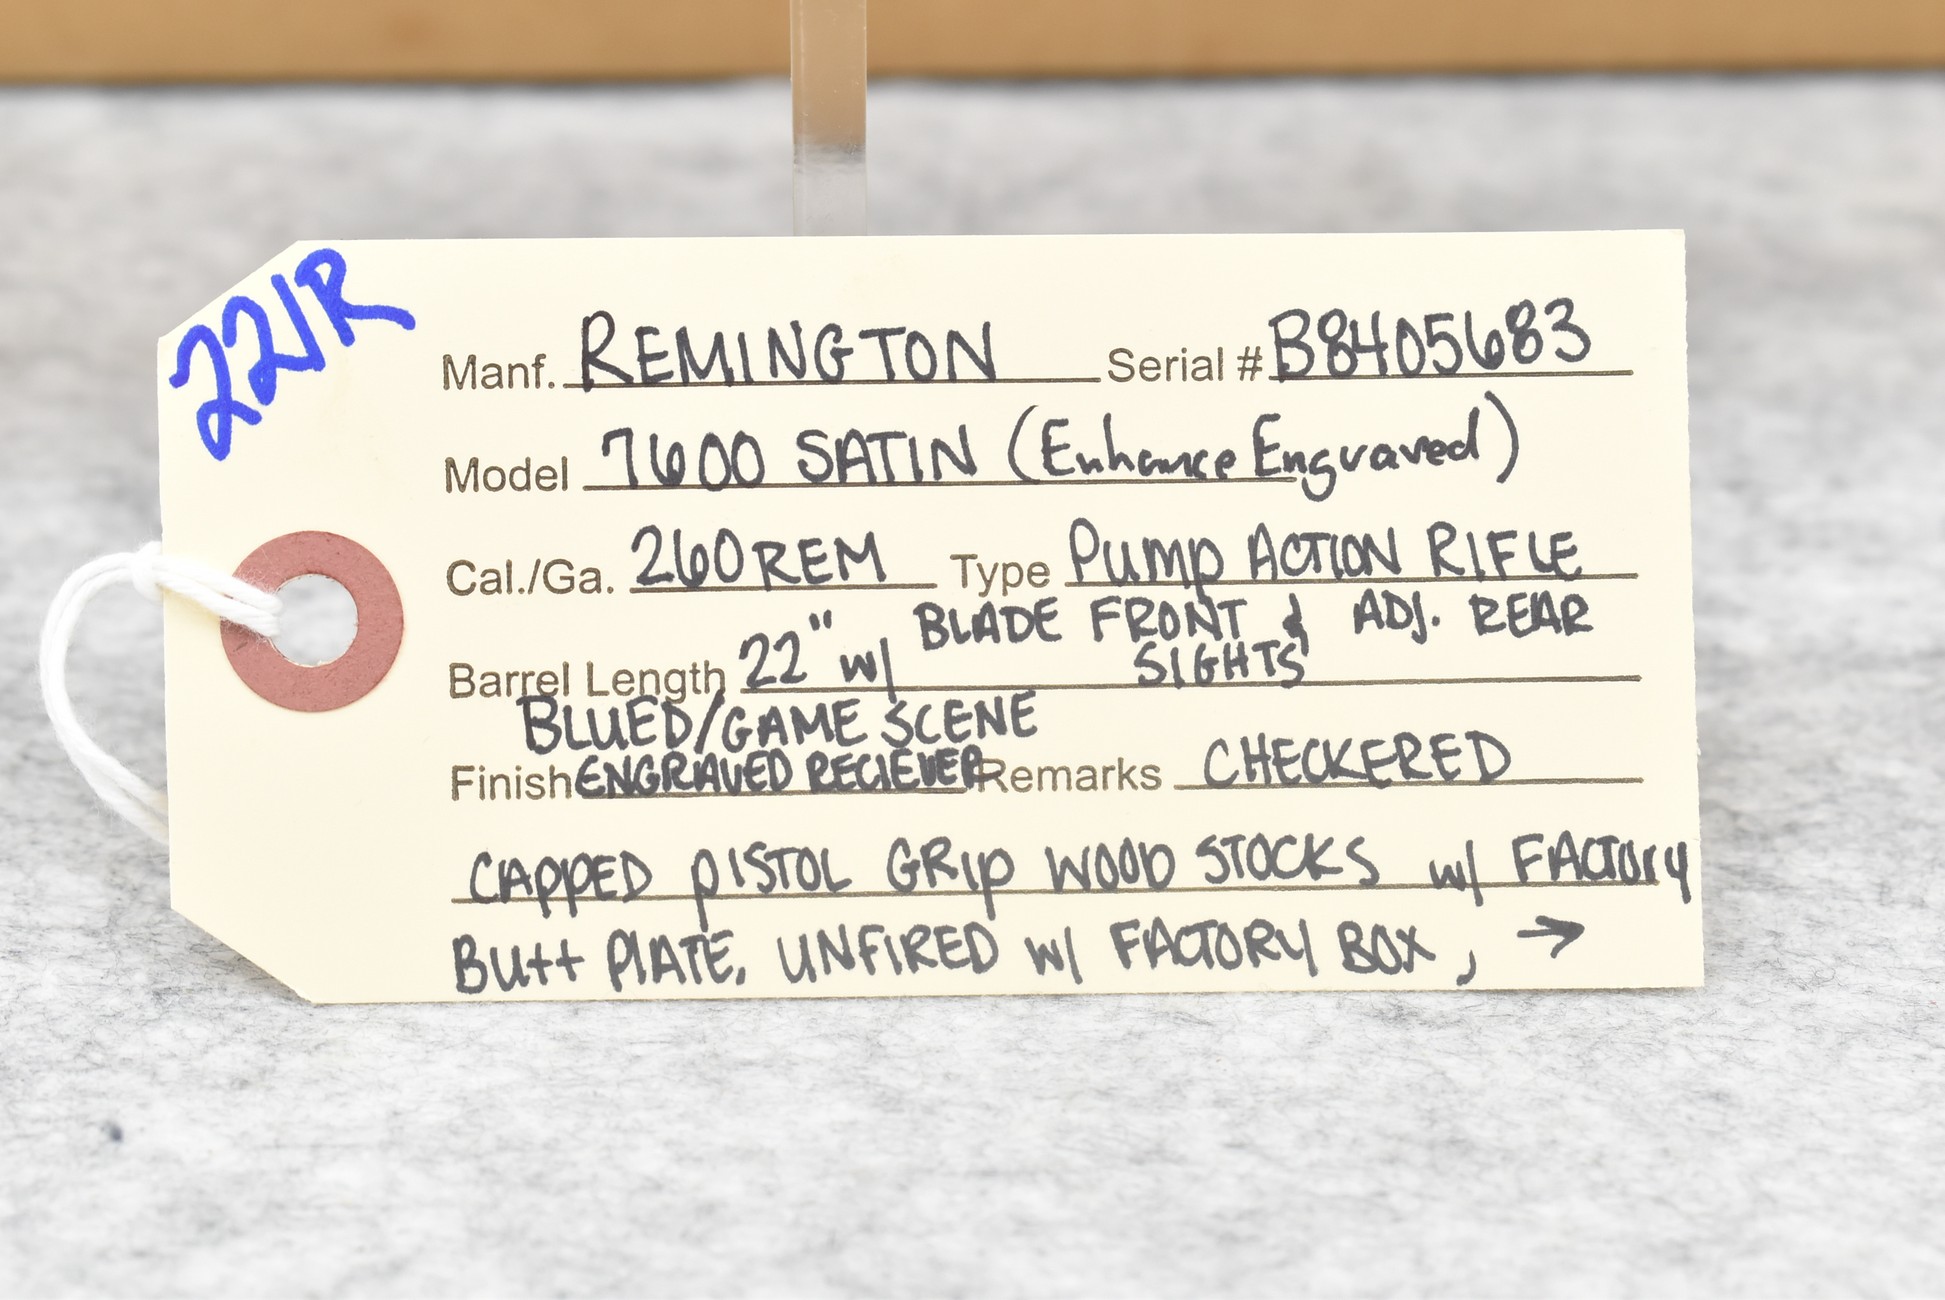 221R
Manf. REMINGTON Serial # B8405683
Model 7600 SATIN (Enhance Engraved)
Cal./Ga. 260 REM Type Pump ACTION RIFLE
BLADE FRONT & ADJ. REAR
Barrel Length 22" w/ SIGHTS
BLUED/GAME SCENE
Finish ENGRAVED RECIEVER Remarks CHECKERED
CAPPED PISTOL GRIP WOOD STOCKS w/ FACTORY
Butt PLATE, UNFIRED w/ FACTORY BOX, →